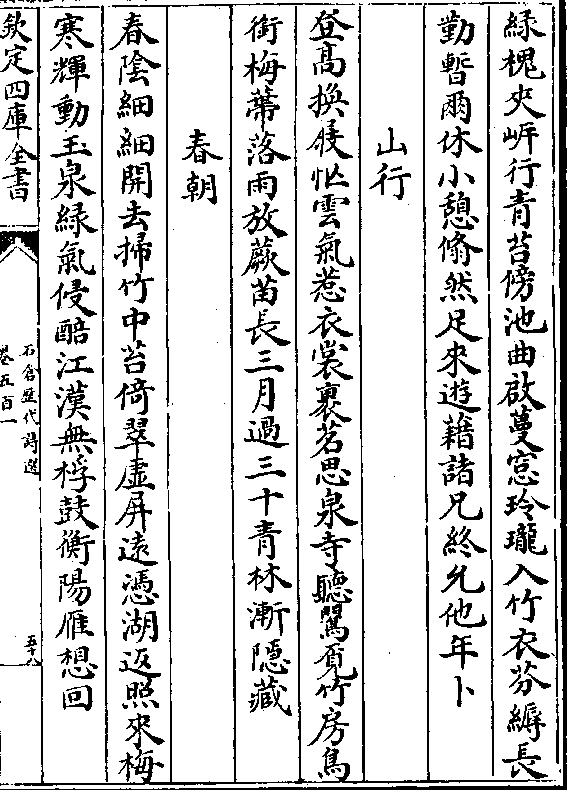 緑槐夾㟁行青苔傍池曲啟蔓窓玲瓏入竹衣芬縟長
勤暫爾休小憩翛然足來遊藉諸兄終允他年卜
山行
登髙換屐忙雲氣惹衣裳裹茗思泉寺聽鶯覓竹房鳥
銜梅蒂落雨放蕨苗長三月過三十青林漸隠藏
春朝
春陰細細開去掃竹中苔倚翠虚屏逺憑湖返照來梅
寒輝動玉泉緑氣侵醅江漢無桴鼓衡陽雁想回
欽定四庫全書
石倉歷代詩選
卷五百一
五十八